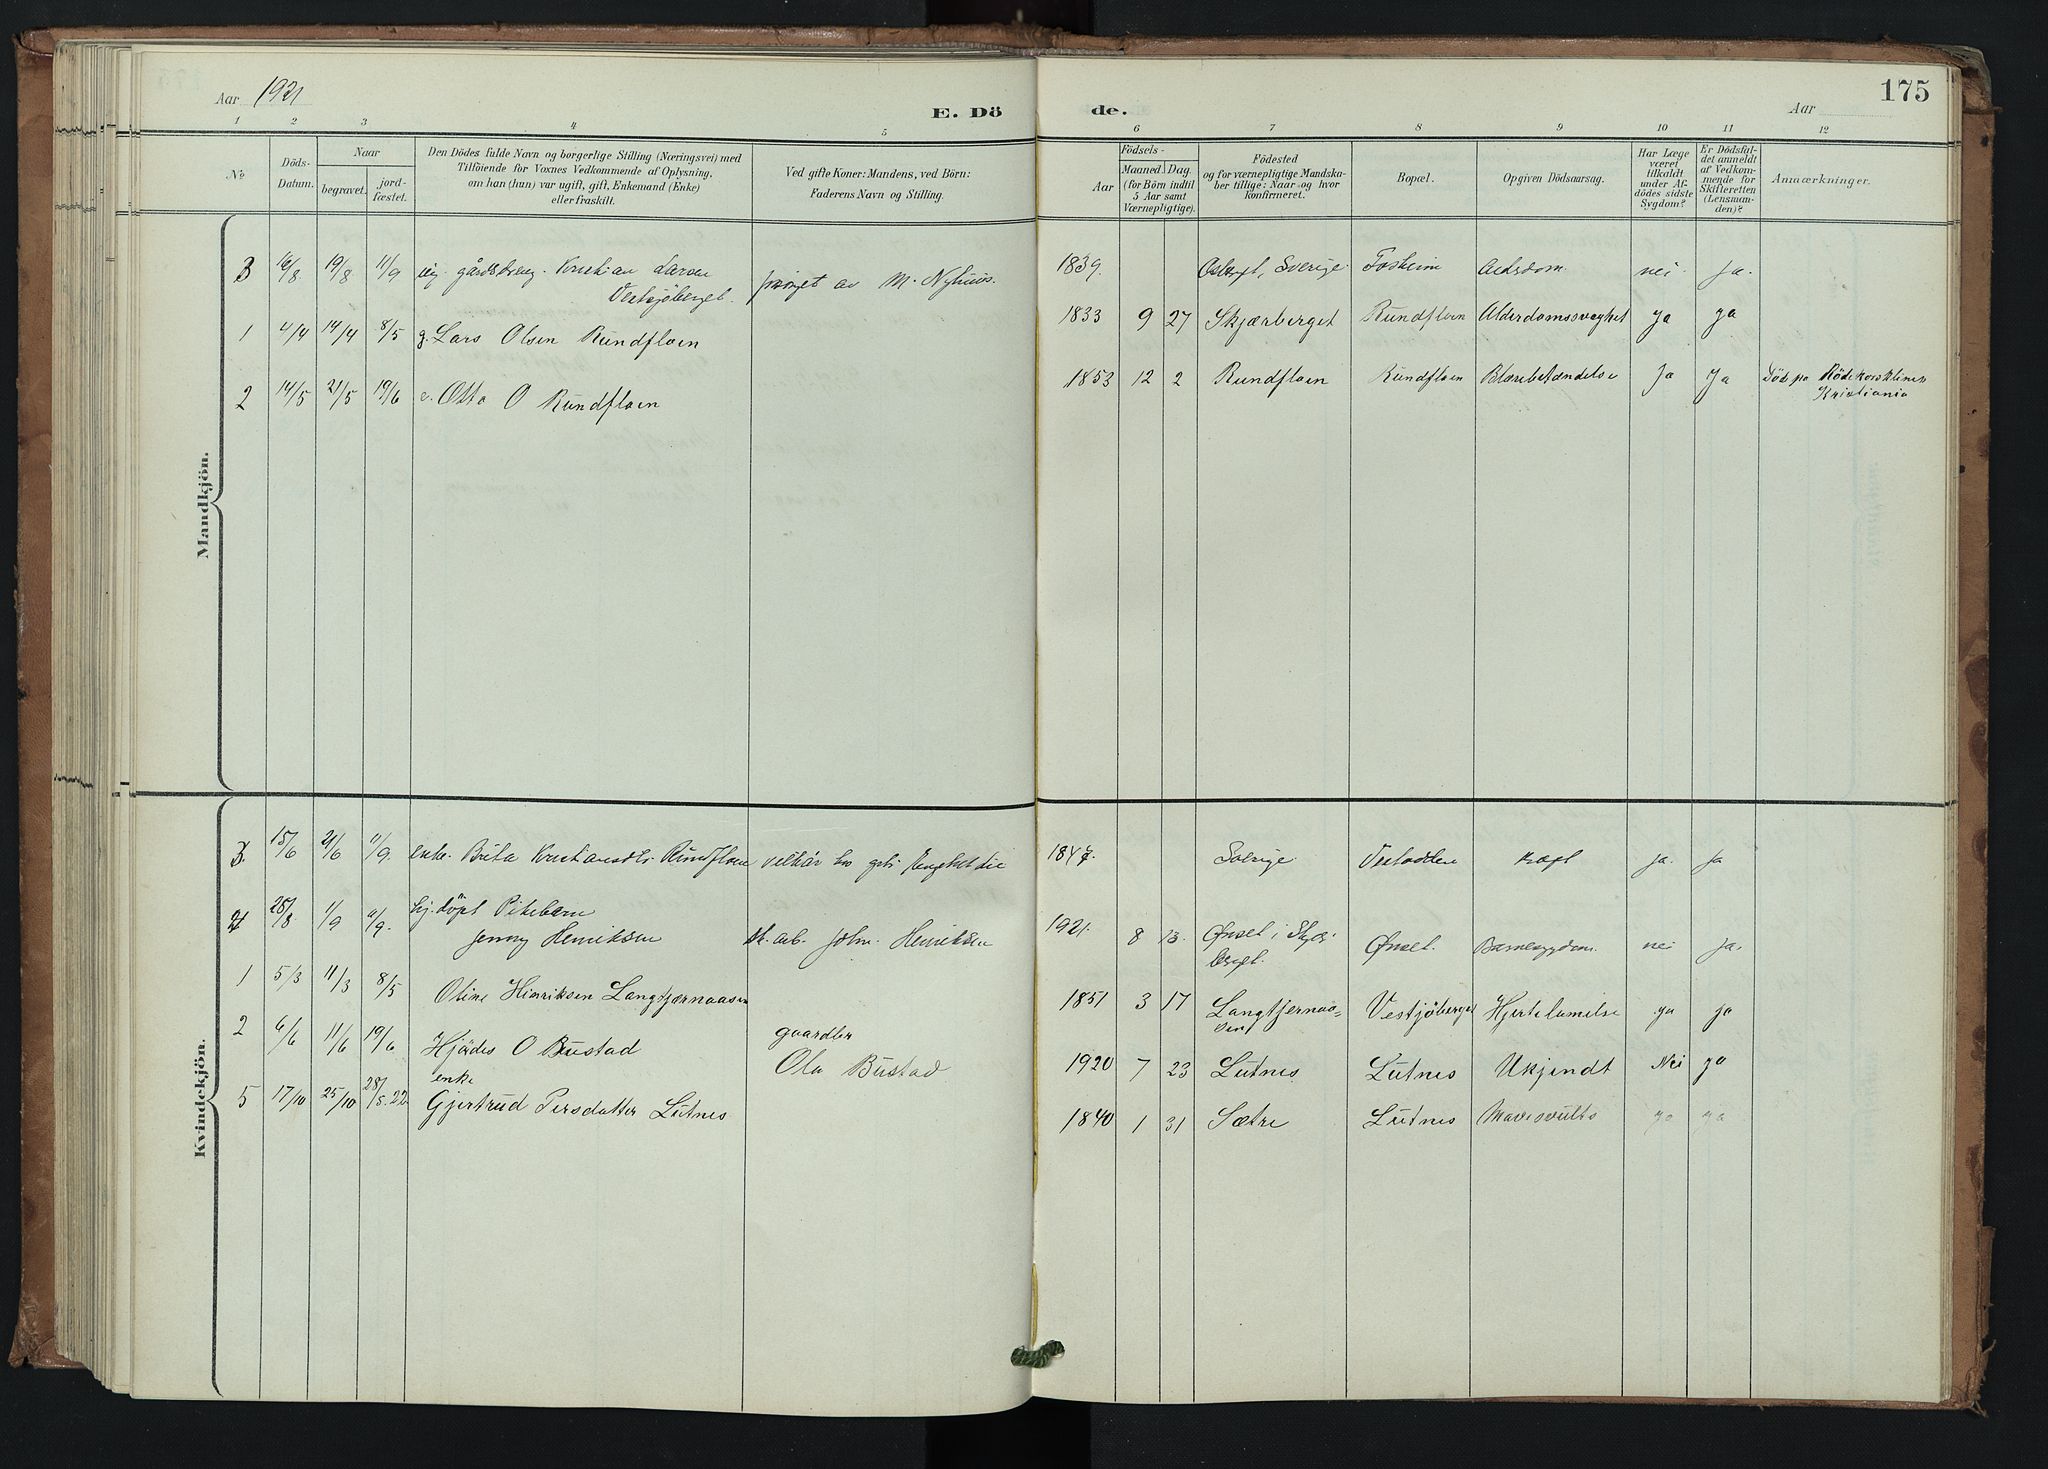 Aar 1921
E. Dö
de.
Aar
175
1 2 3 4 5
6 7 8 9 10 11 12
No
Döds-
Datum.
Naar
begravet.
jord-
fæstet.
Den Dödes fulde Navn og borgerlige Stilling (Næringsvei) med
Tilföiende for Voxnes Vedkommende af Oplysning,
om han (hun) var ugift, gift, Enkemand (Enke)
eller fraskilt.
Ved gifte Koner: Mandens, ved Börn:
Faderens Navn og Stilling.
Aar
Födsels-
Maaned Dag
(for Börn indtil
5 Aar samt
Værnepligtige).
Födested
og for værnepligtige Mandska-
ber tillige: Naar og hvor
konfirmeret.
Bopæl.
Opgiven Dödsaarsag.
Har Læge
været
tilkaldt
under Af-
dödes sidste
Sygdom?
Er Dödsfal-
det anmeldt
af Vedkom-
mende for
Skifteretten
(Lensman-
den)?
Anmærkninger.
Mandkjön.
3 16/8 19/8 11/9 ug. gårdsdreng. Kristian Larsen M. Nyhuus. 1839. Sverige Foskeim nei. Ja.
Vestsjöberget.
1 4/4 14/4 8/5 g. Lars Olsen Rundfloen 1833 9 27 Skjærberget Rundfloen Alderdomssvaghet ja ja
2 14/5 21/5 19/6 e. Otto O Rundfloen 1853 12 2 Rundfloen Rundfloen Blærebetændelse Ja Ja Död på Rödekorsklinik
Kristiania
Kvindekjön.
3. 15/6 21/6 11/9. enke. Brita Kristiansdtr. Rundfloen 1847. Sverige ja. ja
4 28/8 1/9 11/9. döpt Pikebarn
Jenny Henriksen John Henriksen 1921. 8 13. Ønset i Skjær-
berget. Ønset. Barnesygdom. nei ja.
1 5/3 11/3 8/5 Oline Hinriksen Langtjernaasen 1851 3 17 Langtjernaa-
sen Vestsjöberget Hjertelamelse ja ja
2 6/6 11/6 19/6 Hjördis O Bustad gaardbr
Ola Bustad 1920 7 23 Lutnes Lutnes Ukjendt Nei ja
enke
5 17/10 25/10 28/5.22 Gjertrud Persdatter Lutnes 1840 1 31 Sætre Lutnes Mavesvulst ja ja